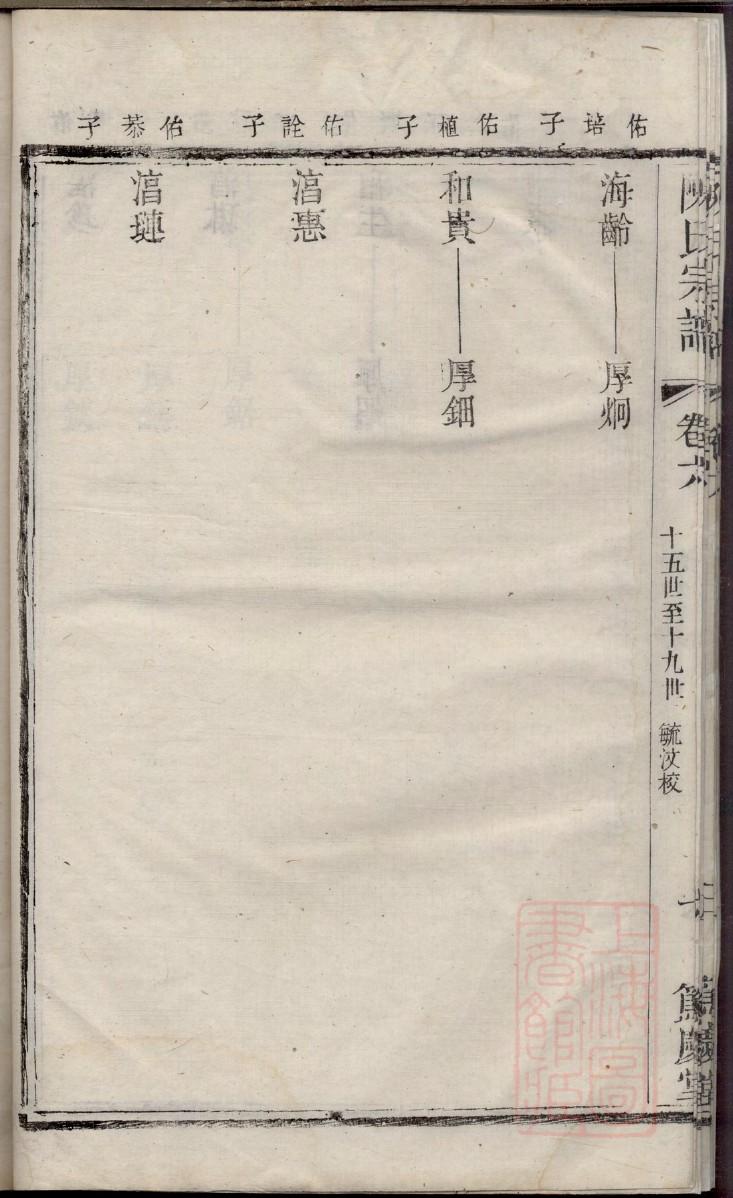 陳氏宗譜
卷六
十五世至十九世
毓汶校
篤慶堂
佑培子
海齡
厚炯
佑植子
和貴
厚鈿
佑詮子
淐惪
佑恭子
淐璉
上海圖書館藏